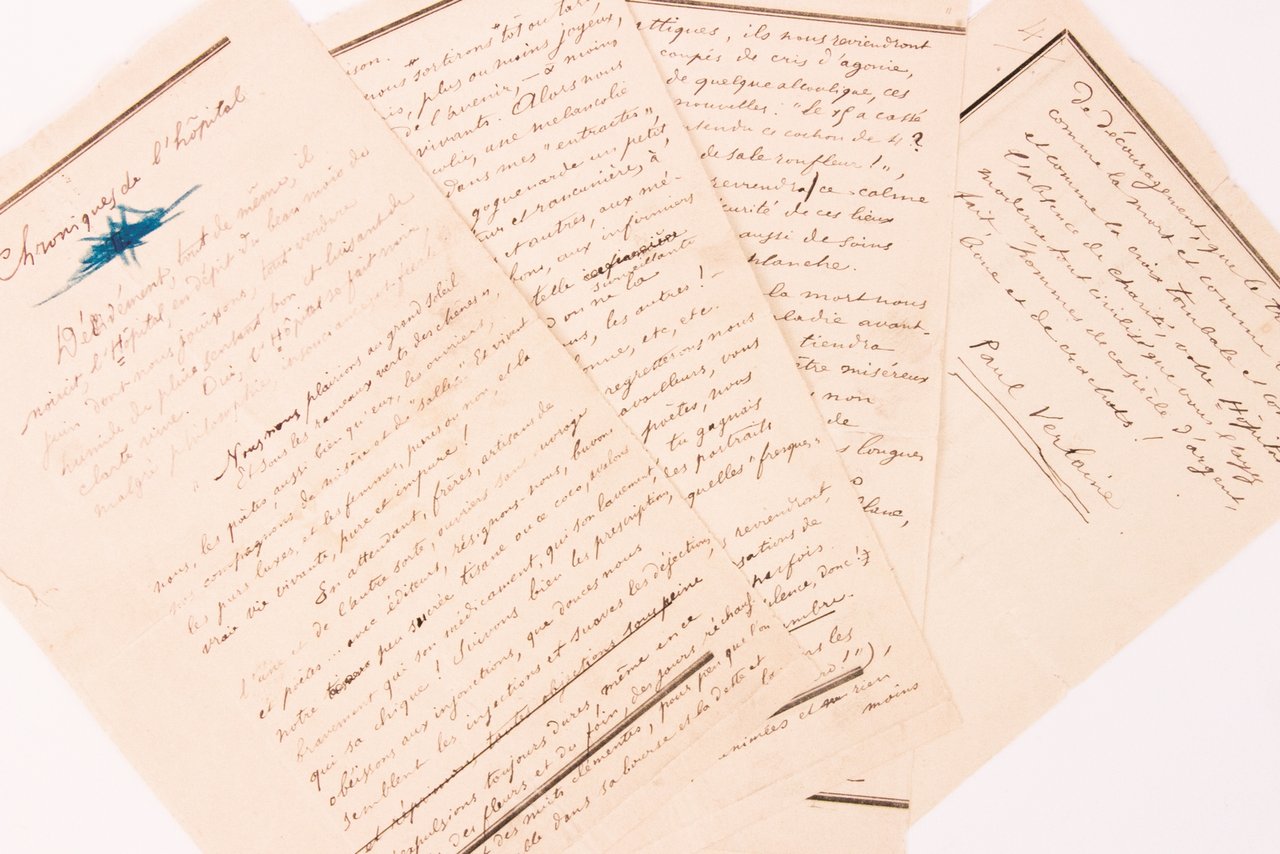 Chroniques de l'hôpital
Décidément, tout de même, il
noircit, l'Hôpital, en dépit du beau mois de
juin dont nous jouissons, tout verdure
humide de pluie sentant bon et luisant de
clarté vive. Oui, l'Hôpital se fait noir
malgré philosophie, insouciance et
" Nous nous plairions au grand soleil
Et sous les rameaux verts des chênes",
nous, les poètes, aussi bien qu'eux, les ouvriers,
nos compagnons de misère et de "salles". Et vivent
les purs luxes, et les femmes, pures ou non, et la
vraie vie vivante, pure et impure!
En attendant, frères, artisans de
l'une et de l'autre sorte, ouvriers sans ouvrage
et poètes... avec éditeurs, résignons-nous, buvons
notre peu sucrée tisane ou ce coco, avalons
bravement qui son médicament, qui son lavement,
qui sa chique! Suivons bien les prescriptions,
obéissons aux injonctions, que douces nous
semblent les injections et suaves les déjections,
et réprimons toutes objections sous peine
d'expulsions toujours dures, même en ce
des fleurs et du foin, des jours réchauf
et des nuits clémentes, pour peu que l'on
dans sa bourse et la dette et
ison.
nous sortirons tôt ou tard,
is, plus ou moins joyeux,
de l'avenir, — à moins,
vivants. Alors nous
une mélancolie
dans mes "entractes"
goguenarde un petit
et rancunière, à
et autres, aux mé-
aux infirmiers
telle surveillante
on ne la
les autres!
etc, etc.
regretterons nous
travailleurs, vous
poètes, nous
tu gagnais
les portraits
quelles "fresques"
reviendront,
sations de
parfois
lence, donc!
ombre.
les
ro!"),
rien
moins
attiques, ils nous reviendront
coupés de cris d'agonie,
de quelque alcoolique, ces
nouvelles: "Le 15 a cassé
tendu ce cochon de 4?
de sale ronfleur!",
reviendra ce calme
curité de ces lieux
aussi de soins
blanche.
la mort nous
ladie avant-
tiendra
être miséreux
non
de
longues
blanc,
4
de découragement, que le
comme la mort et comme
et comme la croix tombale et
l'absence de charité, votre Hôpital
moderne tout civilisé que vous l'ayez
fait, hommes de ce siècle d'argent,
boue et de crachats!
Paul Verlaine